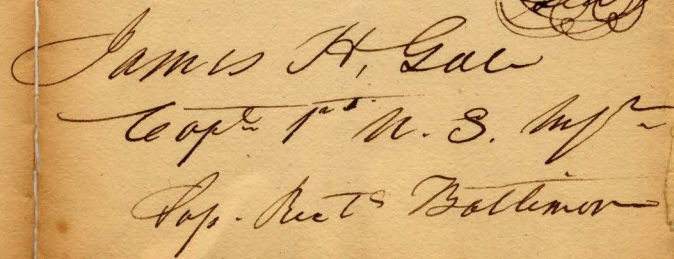 James H. Gale
Capt. 1st U. S. Infy.
Sup. Rect. Baltimore